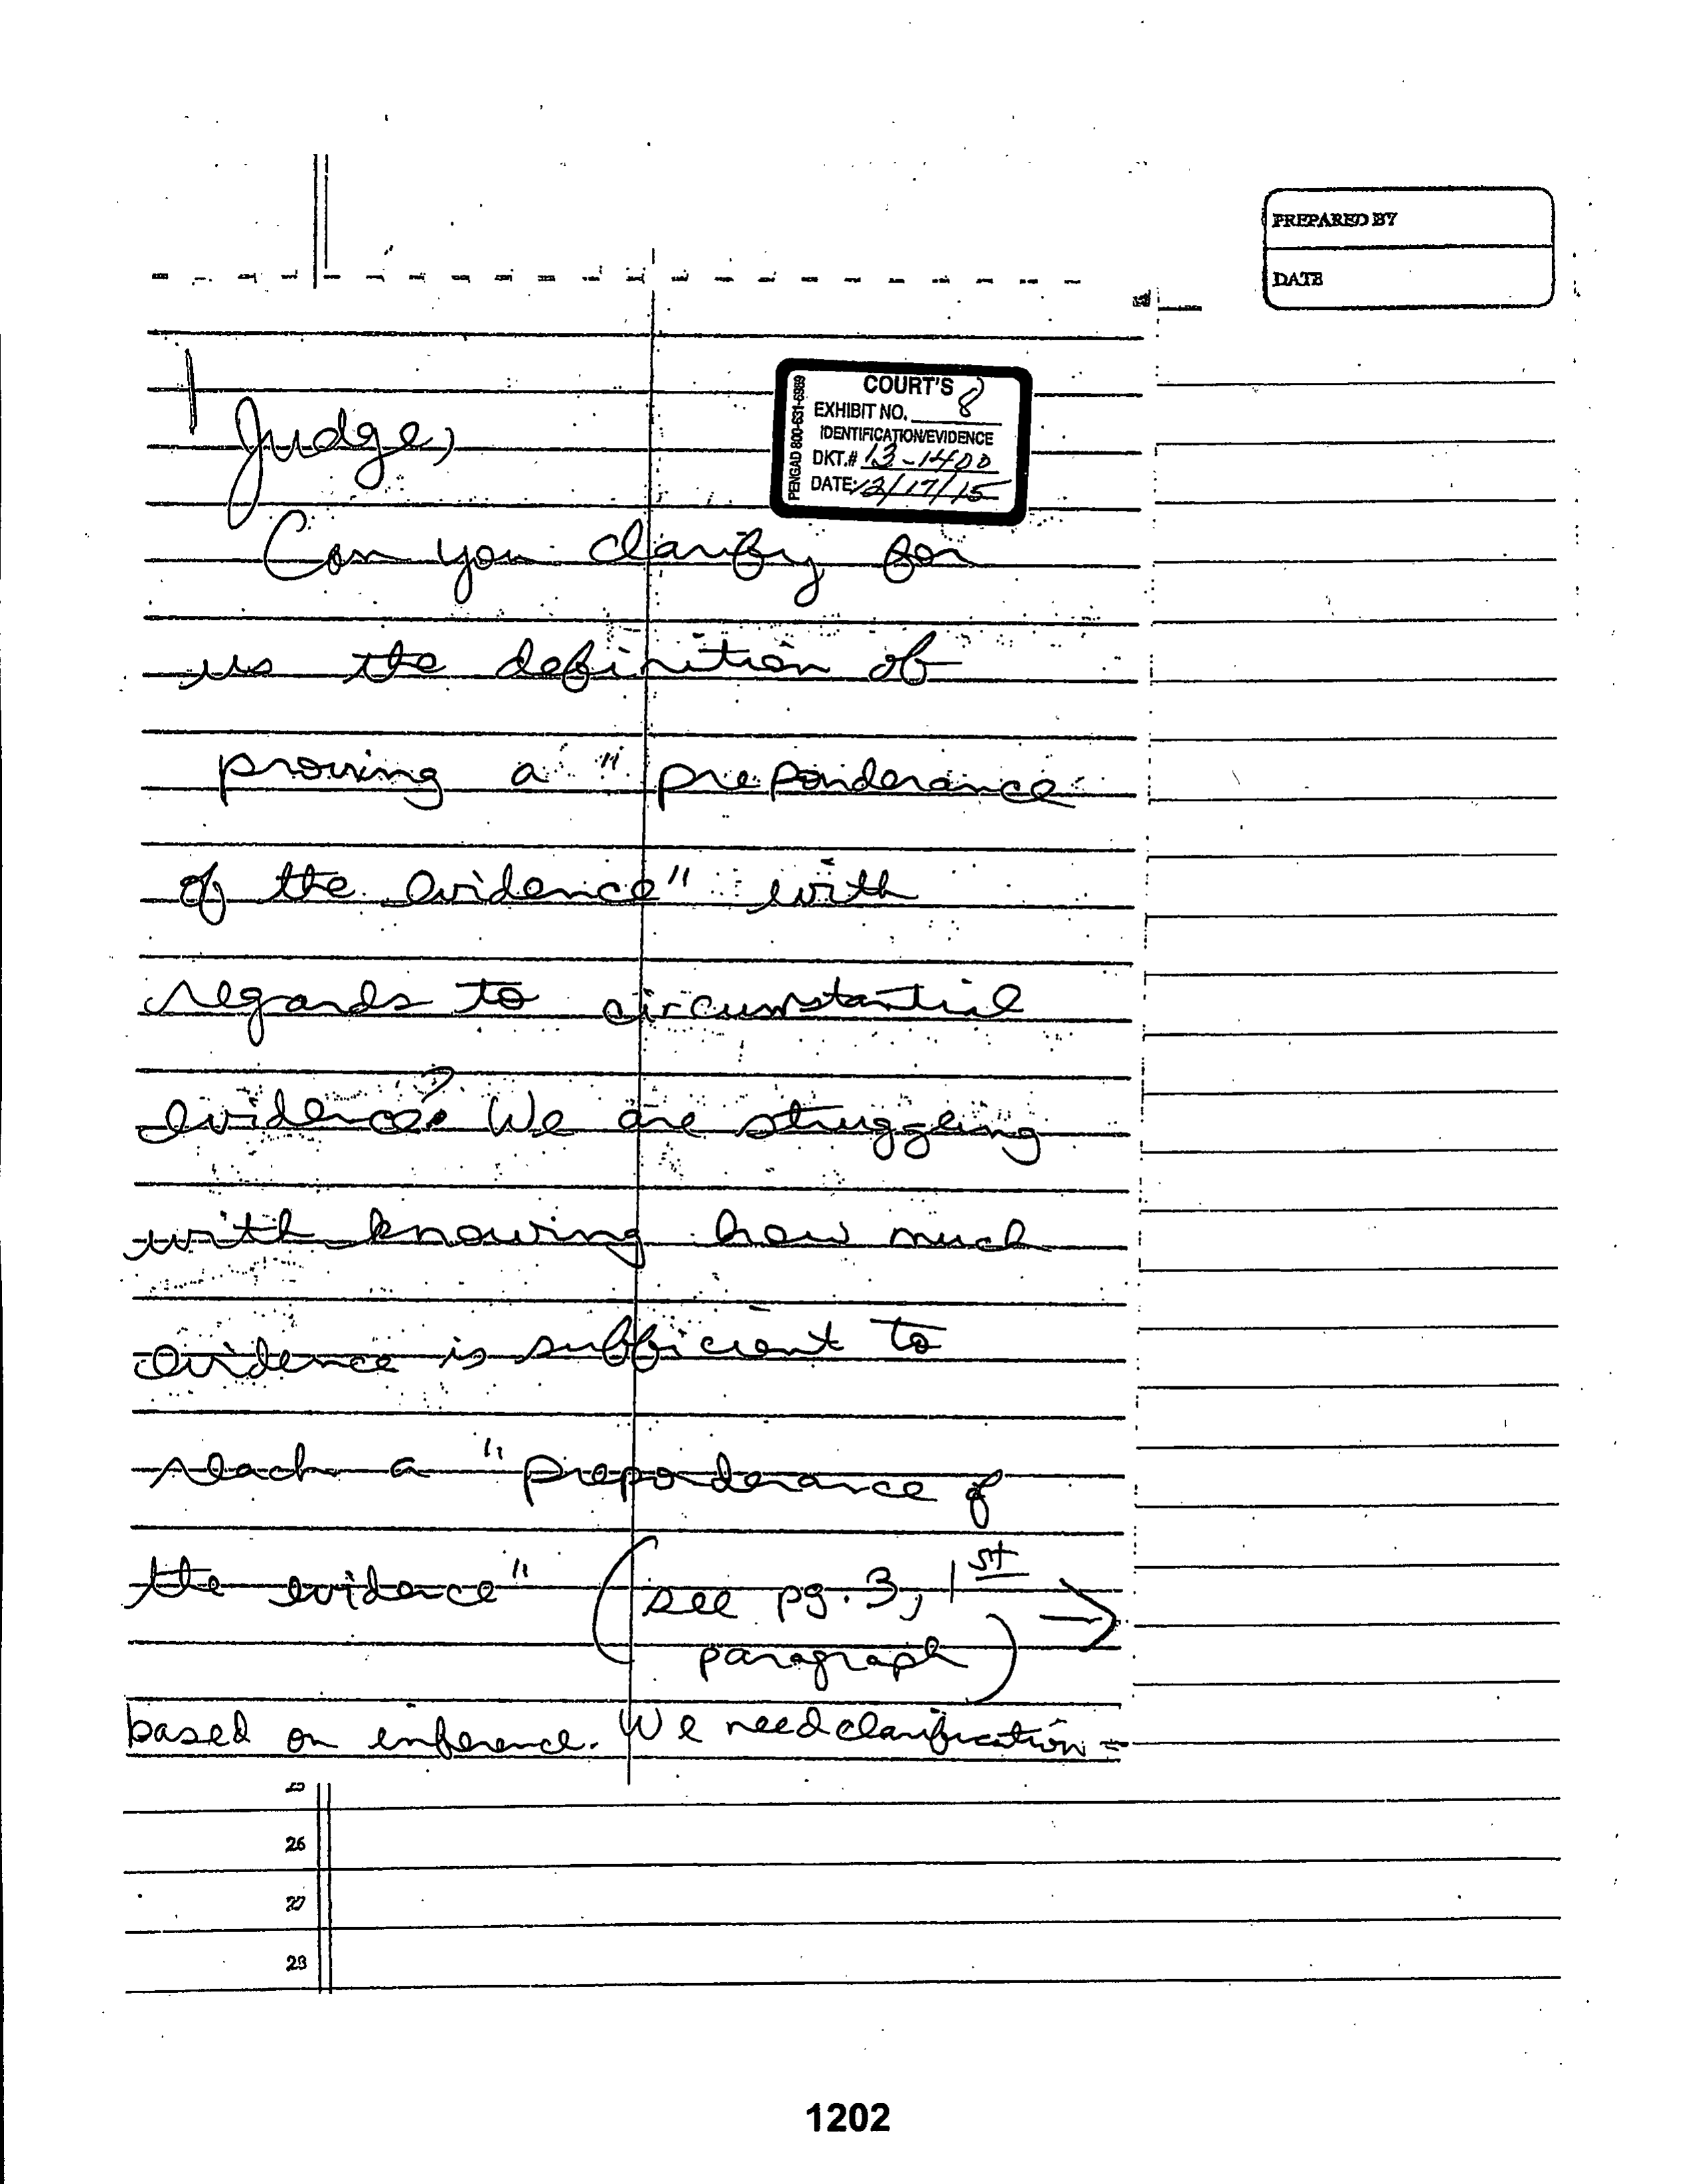 PREPARED BY
DATE
COURT'S
EXHIBIT NO. 8
IDENTIFICATION/EVIDENCE
DKT.# 13-1400
DATE: 12/17/15
PENGAD 800-631-6989
Judge,
Can you clarify for
us the definition of
proving a "preponderance
of the evidence" with
regards to circumstantial
evidence? We are struggling
with knowing how much
evidence is sufficient to
reach a "preponderance of
the evidence" (see pg. 3, 1st →
paragraph)
based on inference. We need clarification =
25
26
27
28
1202